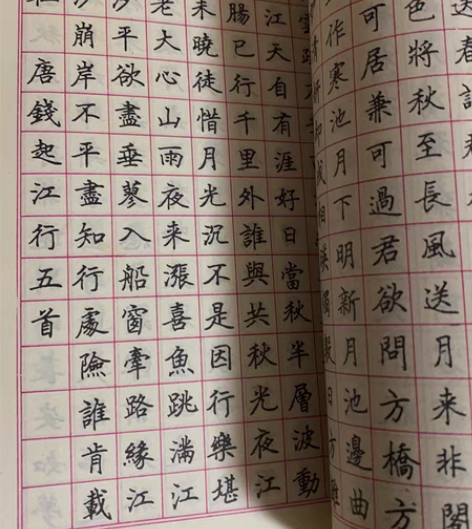 色將秋至長風送月来非關
可居兼可過君欲問方橋方
作寒池月下明新月池邊曲
江天自有涯好日當秋半層波動
腸已行千里外誰與共秋光夜江
未曉徒惜月光沉不是因行樂堪
老大心山雨夜来漲喜魚跳滿江
沙平欲盡垂蓼入船窗牽路緣江
沙崩岸不平盡知行處險誰肯載
唐錢起江行五首